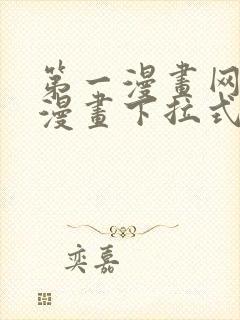 第一漫畫网
漫畫下拉式
奕嘉